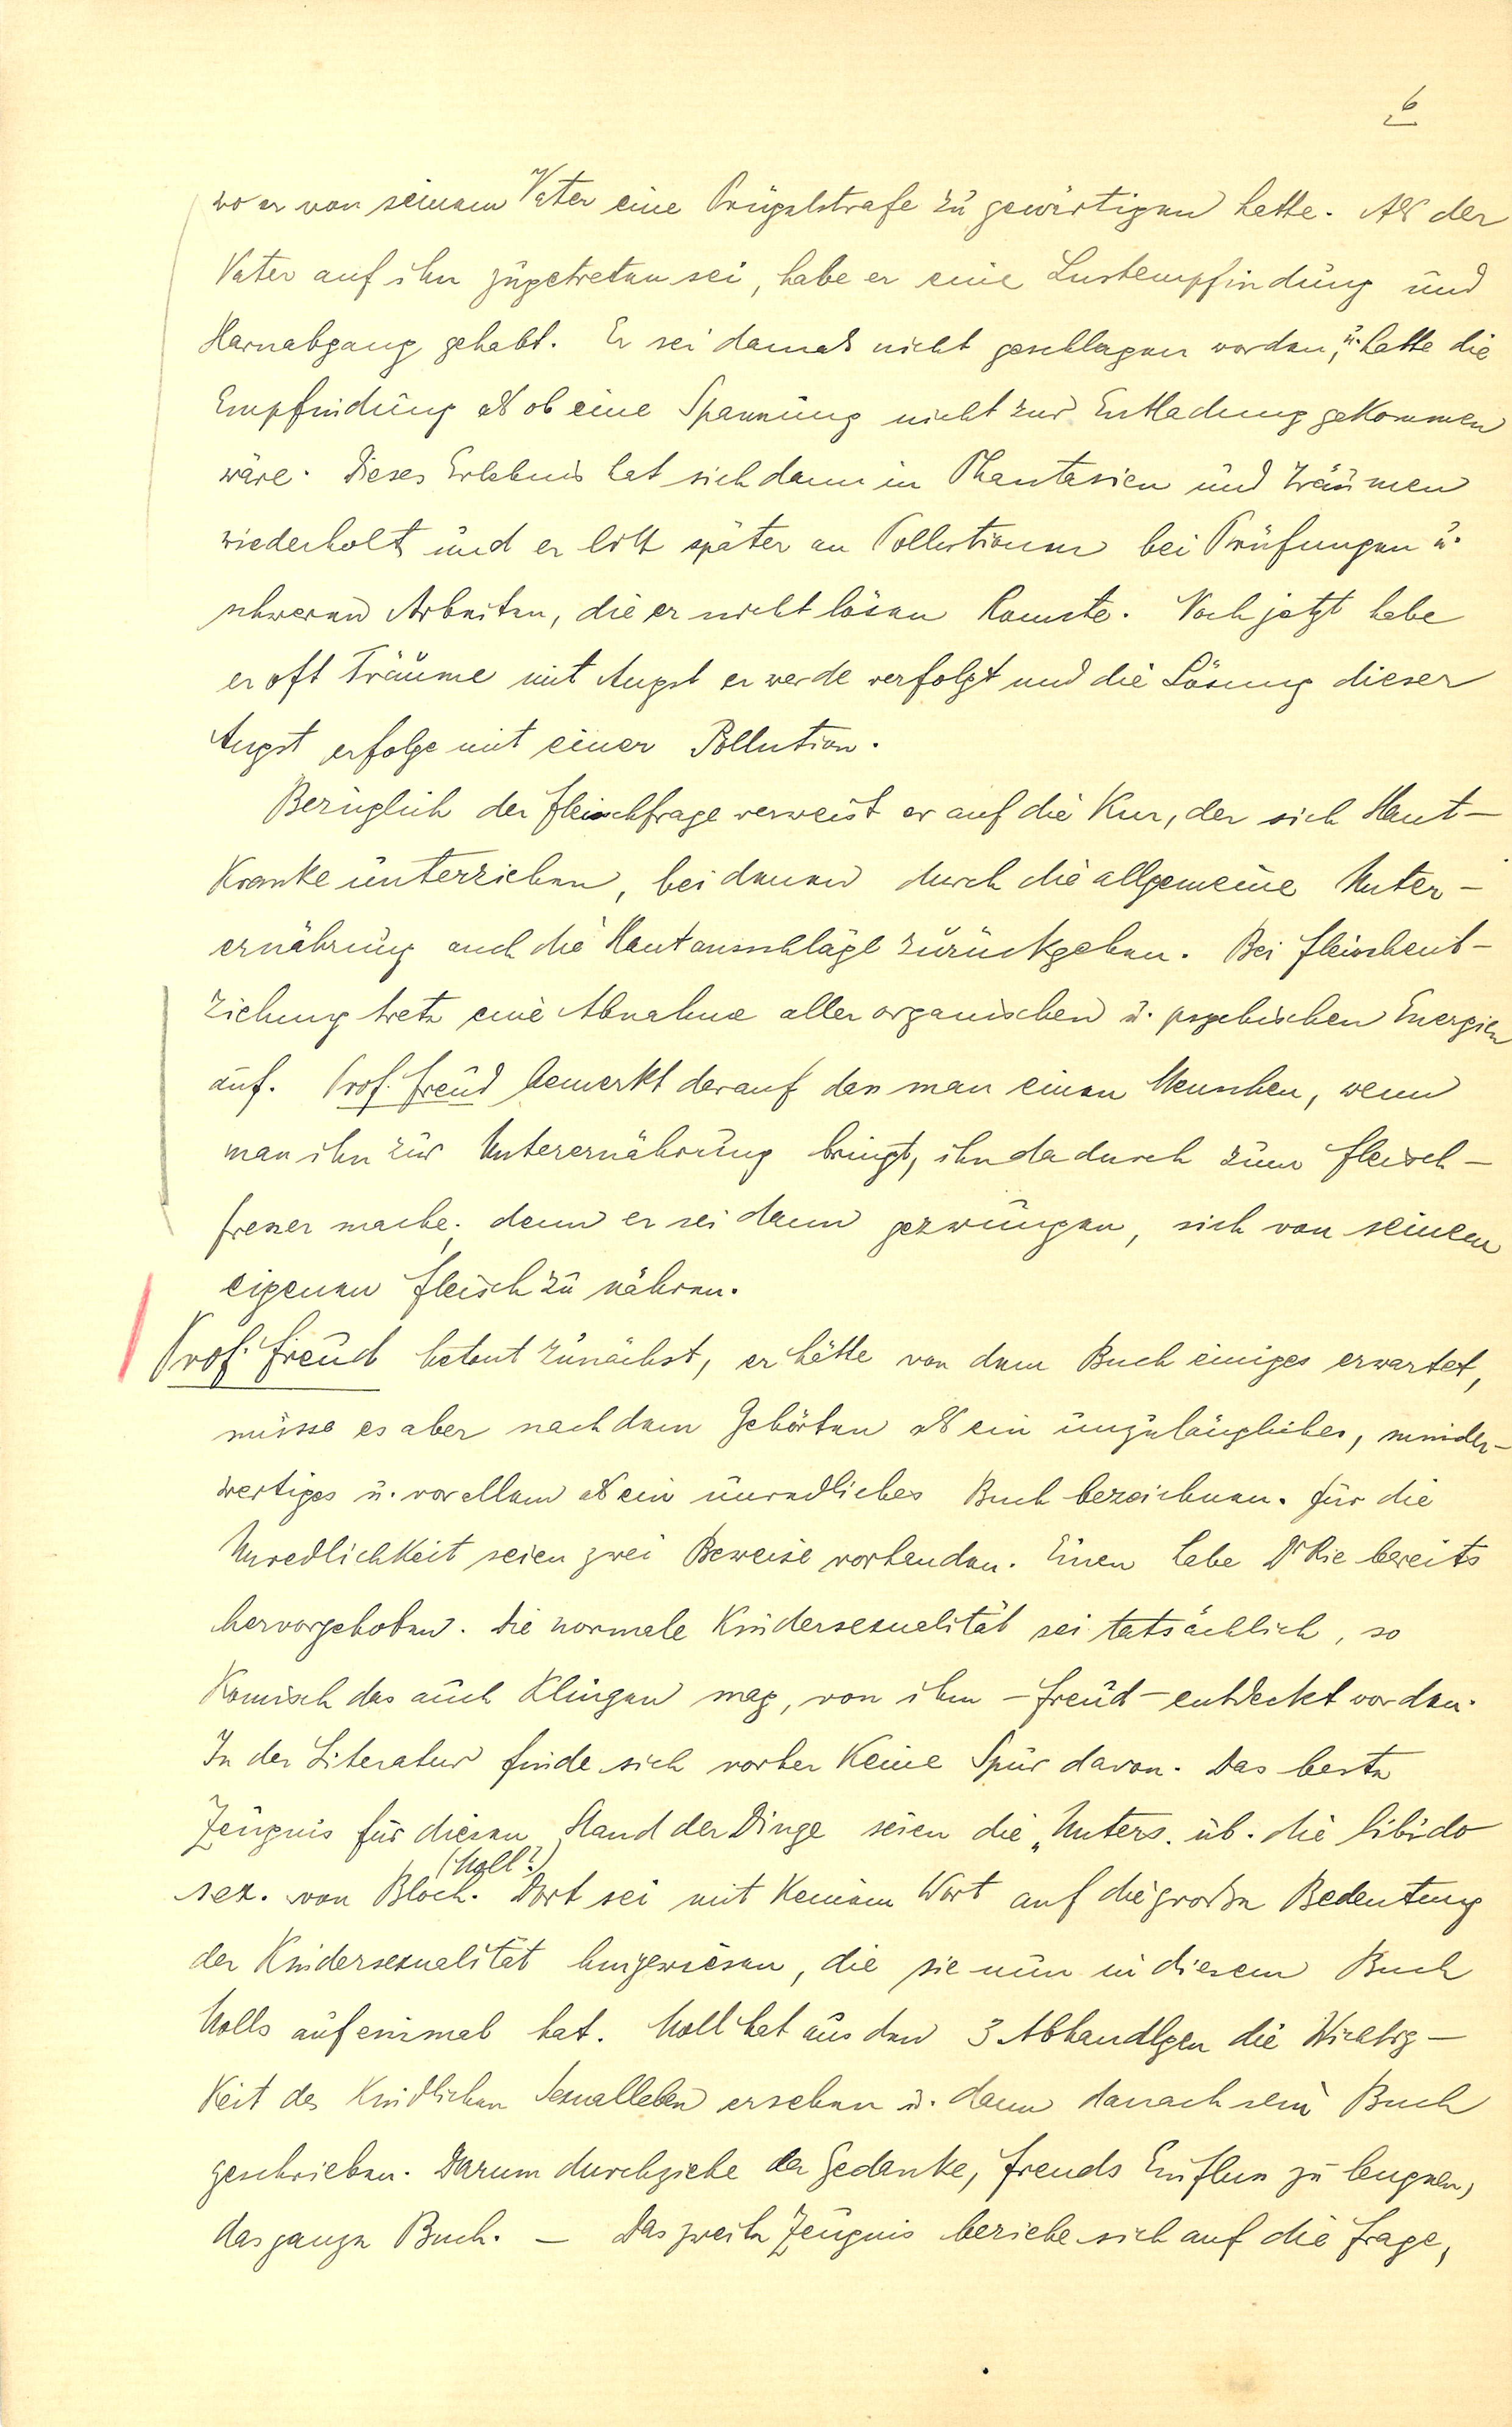 6
wo er von seinem Vater eine Prügelstrafe zu gewärtigen hatte. Als der
Vater auf ihn zugetreten sei, habe er eine Lustempfindung und
Harnabgang gehabt. Er sei damals nicht geschlagen worden, u. hatte die
Empfindung als ob eine Spannung nicht zur Entladung gekommen
wäre. Dieses Erlebnis hat sich dann in Phantasien und Träumen
wiederholt und er litt später an Pollutionen bei Prüfungen u.
schweren Arbeiten, die er nicht lösen konnte. Noch jetzt habe
er oft Träume mit Angst er werde verfolgt und die Lösung dieser
Angst erfolge mit einer Pollution.
Bezüglich der Fleischfrage verweist er auf die Kur, der sich Haut-
kranke unterziehen, bei denen durch die allgemeine Unter-
ernährung auch die Hautausschläge zurückgehen. Bei Fleischent-
ziehung trete eine Abnahme aller organischen u. psychischen Energien
auf. Prof. Freud bemerkt darauf dass man einen Menschen, wenn
man ihn zur Unterernährung bringt, ihn dadurch zum Fleisch-
fresser mache; denn er sei dann gezwungen, sich von seinem
eigenen Fleisch zu nähren.
Prof. Freud betont zunächst, er hätte von dem Buch einiges erwartet,
müsse es aber nach dem Gehörten als ein unzulängliches, minder-
wertiges u. vor allem als ein unredliches Buch bezeichnen. Für die
Unredlichkeit seien zwei Beweise vorhanden. Einen habe Dr Rie bereits
hervorgehoben. Die normale Kindersexualität sei tatsächlich, so
komisch das auch klingen mag, von ihm – Freud – entdeckt worden.
In der Literatur finde sich vorher keine Spur davon. Das beste
Zeugnis für diesen Stand der Dinge seien die „Unters. üb. die libido
(Moll?)
sex. von Bloch. Dort sei mit keinem Wort auf die grosse Bedeutung
der Kindersexualität hingewiesen, die sie nun in diesem Buch
Molls auf einmal hat. Moll hat aus den 3 Abhandlgen die Wichtig-
keit des kindlichen Sexuallebens ersehen u. dann danach sein Buch
geschrieben. Darum durchziehe der Gedanke, Freuds Einfluss zu leugnen,
das ganze Buch. – Das zweite Zeugnis beziehe sich auf die Frage,